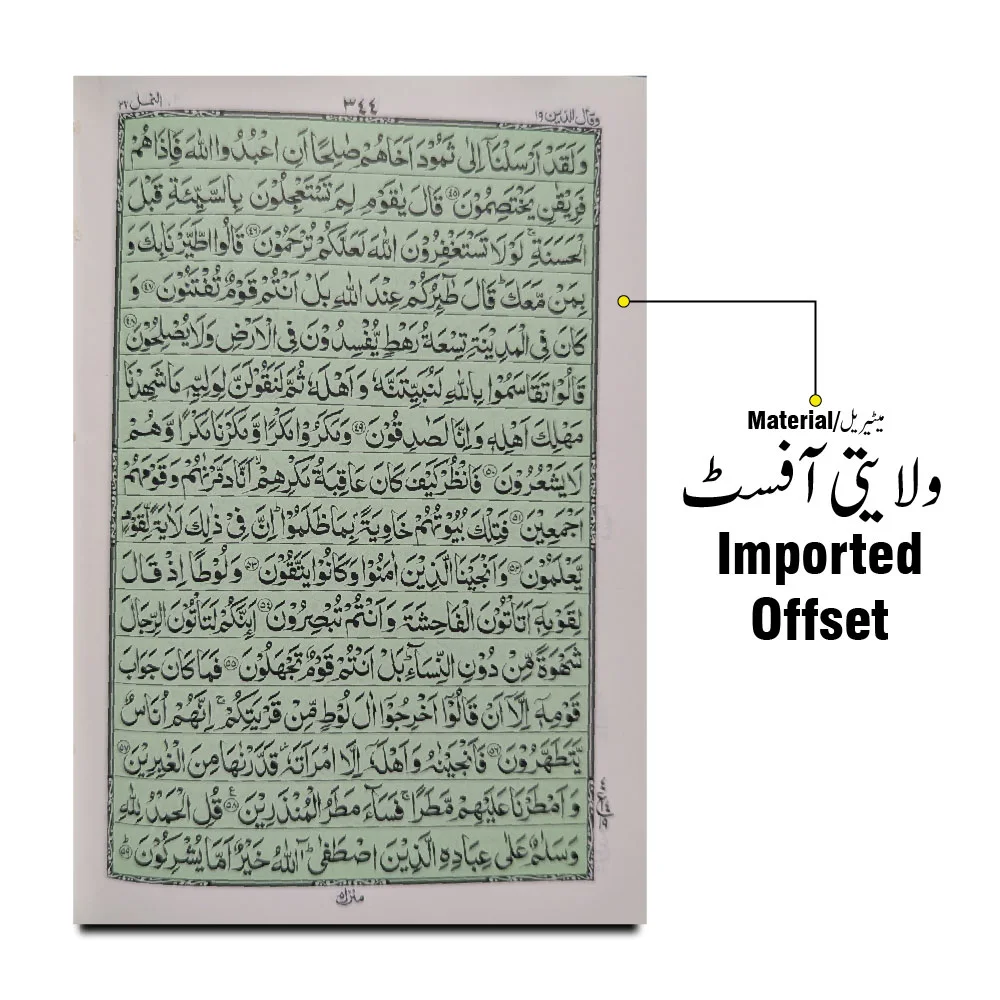 وقال الذین ١٩
٣٤٤
النمل ٢٧
وَلَقَدْ اَرْسَلْنَاۤ اِلٰی ثَمُوْدَ اَخَاهُمْ صٰلِحًا اَنِ اعْبُدُوا اللّٰهَ فَاِذَا هُمْ
فَرِیْقٰنِ یَخْتَصِمُوْنَ ﴿٤٥﴾ قَالَ یٰقَوْمِ لِمَ تَسْتَعْجِلُوْنَ بِالسَّیِّئَةِ قَبْلَ
الْحَسَنَةِ ۚ لَوْلَا تَسْتَغْفِرُوْنَ اللّٰهَ لَعَلَّكُمْ تُرْحَمُوْنَ ﴿٤٦﴾ قَالُوا اطَّیَّرْنَا بِكَ وَ
بِمَنْ مَّعَكَ ؕ قَالَ طٰٓئِرُكُمْ عِنْدَ اللّٰهِ بَلْ اَنْتُمْ قَوْمٌ تُفْتَنُوْنَ ﴿٤٧﴾ وَ
كَانَ فِی الْمَدِیْنَةِ تِسْعَةُ رَهْطٍ یُّفْسِدُوْنَ فِی الْاَرْضِ وَلَا یُصْلِحُوْنَ ﴿٤٨﴾
قَالُوْا تَقَاسَمُوْا بِاللّٰهِ لَنُبَیِّتَنَّهٗ وَ اَهْلَهٗ ثُمَّ لَنَقُوْلَنَّ لِوَلِیِّهٖ مَا شَهِدْنَا
مَهْلِكَ اَهْلِهٖ وَاِنَّا لَصٰدِقُوْنَ ﴿٤٩﴾ وَمَكَرُوْا مَكْرًا وَّمَكَرْنَا مَكْرًا وَّهُمْ
لَا یَشْعُرُوْنَ ﴿٥٠﴾ فَانْظُرْ كَیْفَ كَانَ عَاقِبَةُ مَكْرِهِمْ ۙ اَنَّا دَمَّرْنٰهُمْ وَقَوْمَهُمْ
اَجْمَعِیْنَ ﴿٥١﴾ فَتِلْكَ بُیُوْتُهُمْ خَاوِیَةًۢ بِمَا ظَلَمُوْا ؕ اِنَّ فِیْ ذٰلِكَ لَاٰیَةً لِّقَوْمٍ
یَّعْلَمُوْنَ ﴿٥٢﴾ وَاَنْجَیْنَا الَّذِیْنَ اٰمَنُوْا وَكَانُوْا یَتَّقُوْنَ ﴿٥٣﴾ وَلُوْطًا اِذْ قَالَ
لِقَوْمِهٖۤ اَتَاْتُوْنَ الْفَاحِشَةَ وَاَنْتُمْ تُبْصِرُوْنَ ﴿٥٤﴾ اَئِنَّكُمْ لَتَاْتُوْنَ الرِّجَالَ
شَهْوَةً مِّنْ دُوْنِ النِّسَآءِ ؕ بَلْ اَنْتُمْ قَوْمٌ تَجْهَلُوْنَ ﴿٥٥﴾ فَمَا كَانَ جَوَابَ
قَوْمِهٖۤ اِلَّاۤ اَنْ قَالُوْۤا اَخْرِجُوْۤا اٰلَ لُوْطٍ مِّنْ قَرْیَتِكُمْ ۚ اِنَّهُمْ اُنَاسٌ
یَّتَطَهَّرُوْنَ ﴿٥٦﴾ فَاَنْجَیْنٰهُ وَاَهْلَهٗۤ اِلَّا امْرَاَتَهٗ ؗ قَدَّرْنٰهَا مِنَ الْغٰبِرِیْنَ ﴿٥٧﴾
وَ اَمْطَرْنَا عَلَیْهِمْ مَّطَرًا ۚ فَسَآءَ مَطَرُ الْمُنْذَرِیْنَ ﴿٥٨﴾ قُلِ الْحَمْدُ لِلّٰهِ
وَسَلٰمٌ عَلٰی عِبَادِهِ الَّذِیْنَ اصْطَفٰی ؕ آٰللّٰهُ خَیْرٌ اَمَّا یُشْرِكُوْنَ ﴿٥٩﴾
منزل ٥
Material/میٹیریل
ولایتی آفسٹ
Imported
Offset